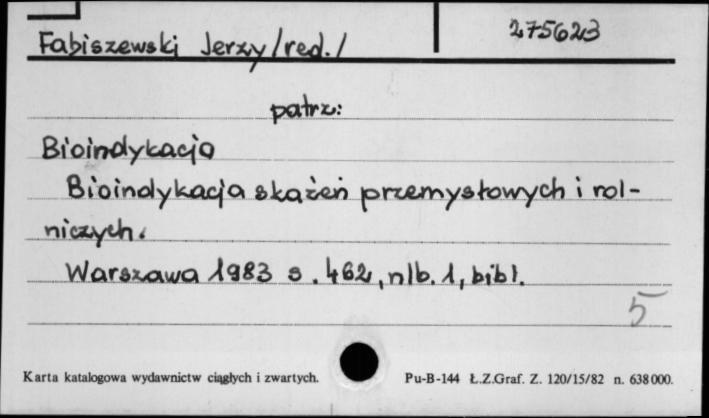 275623
Fabiszewski Jerzy /red./
patrz:
Bioindykacja
Bioindykacja skażeń przemysłowych i rol-
niczych.
Warszawa 1983 s. 462, nlb. 1, bibl.
5
Karta katalogowa wydawnictw ciągłych i zwartych. Pu-B-144 Ł.Z.Graf. Z. 120/15/82 n. 638 000.